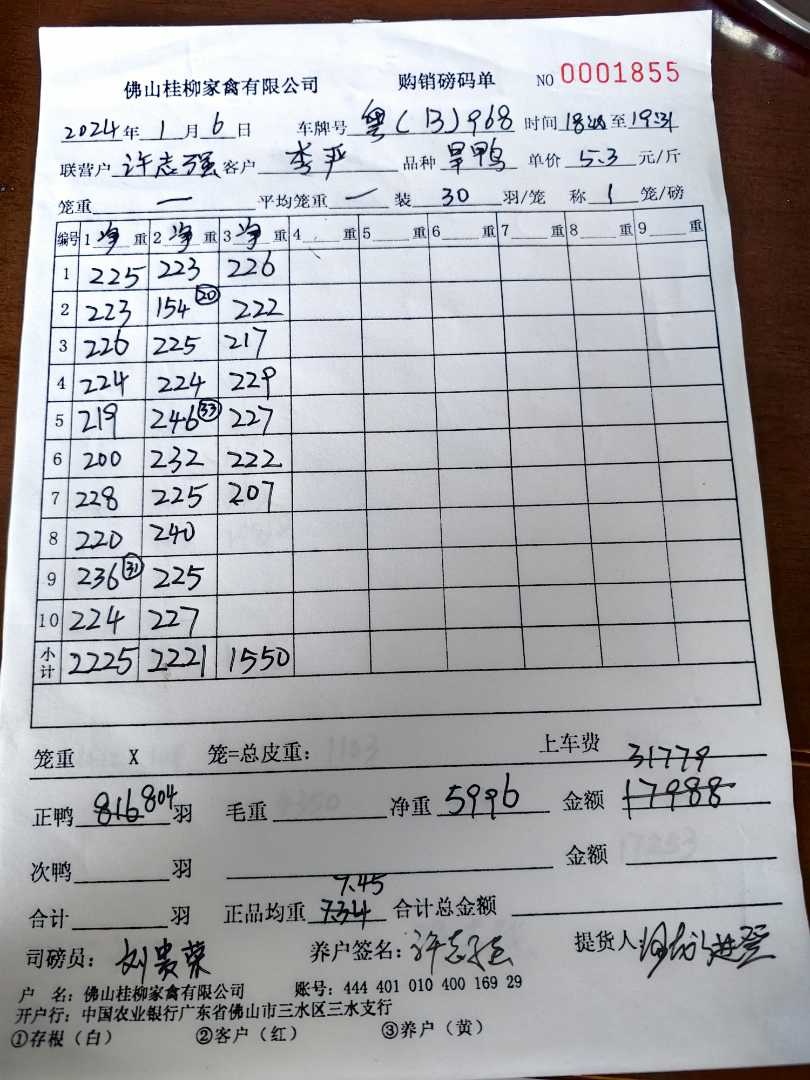 佛山桂柳家禽有限公司 购销磅码单 NO 0001855
2024年 1 月 6 日 车牌号 粤(13)968 时间 18: 至 19:31
联营户 许志强 客户 李严 品种 旱鸭 单价 5.3 元/斤
笼重 一 平均笼重 一 装 30 羽/笼 称 1 笼/磅
编号 1 净 重 2 净 重 3 净 重 4 重 5 重 6 重 7 重 8 重 9 重
1 225 223 226
2 223 154 (20) 222
3 226 225 217
4 224 224 229
5 219 246 (33) 227
6 200 232 222
7 228 225 207
8 220 240
9 236 (31) 225
10 224 227
小计 2225 2221 1550
笼重 X 笼=总皮重: 上车费
31779
正鸭 816 804 羽 毛重 净重 5996 金额 17988
次鸭 羽 金额
7.45
合计 羽 正品均重 7.34 合计总金额
司磅员: 刘贵荣 养户签名: 许志强 提货人:
户 名: 佛山桂柳家禽有限公司 账号: 444 401 010 400 169 29
开户行: 中国农业银行广东省佛山市三水区三水支行
①存根（白） ②客户（红） ③养户（黄）